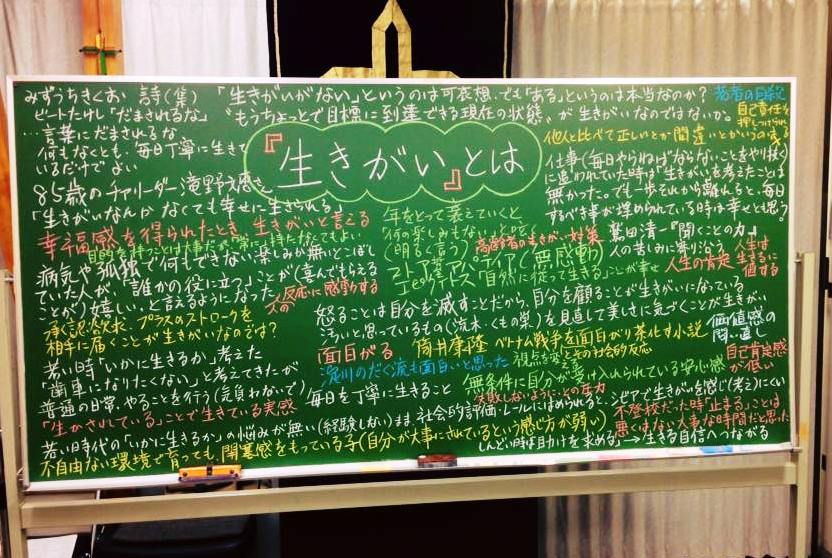 みずうちきくお 詩(集) 「生きがいがない」というのは可哀想、でも「ある」というのは本当なのか? 若者の自殺
ビートたけし「だまされるな」 “もうちょっとで目標に到達できる現在の状態”が生きがいなのではないか。
自己責任を
押しつけられ
…言葉にだまされるな
何もなくとも、毎日丁寧に生きて
いるだけでよい
『生きがい』とは
他人と比べて正しいとか間違いとかいうのは
仕事(毎日やらねばならないことをやり抜く)
に追われていた時は「生きがい」を考えたことは
無かった。でも一歩それから離れると、毎日
するべき事が埋められている時は幸せとも思う。
85歳のチアリーダー滝野文恵さん
「生きがいなんかなくても幸せに生きられる」
幸福感を得られたとき、生きがいと言える
目的を持つことは大事だが常に持たなくてもよい
病気や孤独で何もできない、楽しみが無いとこぼし
ていた人が、「誰かの役に立つ」ことが(喜んでもらえる
ことが)嬉しい、と言えるようになった
人の反応に感動する
年をとって衰えていくと
何の楽しみもないよ
(明るく言う)
高齢者の生きがい対策
ストア哲学 アパテイア(無感動)
エピクテトス「自然に従って生きる」ことが幸せ
鷲田清一『聞くことの力』
人の苦しみに寄り添う
人生の肯定
人生は
生きるに
値する
承認欲求 プラスのストロークを
相手に届くことが生きがいなのでは?
怒ることは自分を滅すことだから、自分を顧ることが生きがいになっている
ごちいと思っているもの(流木、くもの巣)を見直して美しさに気づくことが生きがい
価値感の
問い直し
面白がる
筒井康隆 ベトナム戦争を面白がり茶化す小説
淀川のだく流も面白いと思った
視点を変 その社会的反応
若い時「いかに生きるか」考えた
「歯車になりたくない」と考えてきたが
普通の日常、やることを行う(気負わないで)
毎日を丁寧に生きること
無条件に自分が受け入れられている安心感
自己肯定感
が低い
「生かされている」ことで生きている実感
失敗しないように、との圧力
社会的評価・レールにはめられると、シビアで生きがいを感じ(考え)にくい
若い時代の「いかに生きるか」の悩みが無い(経験しない)まま、
不登校だった時「止まる」ことは
悪くはない大事な時間だと思った
不自由ない環境で育っても、閉塞感をもっている子(自分が大事にされているという感じ方が弱い)
しんどい時は助けを求める→生きる自信へつながる